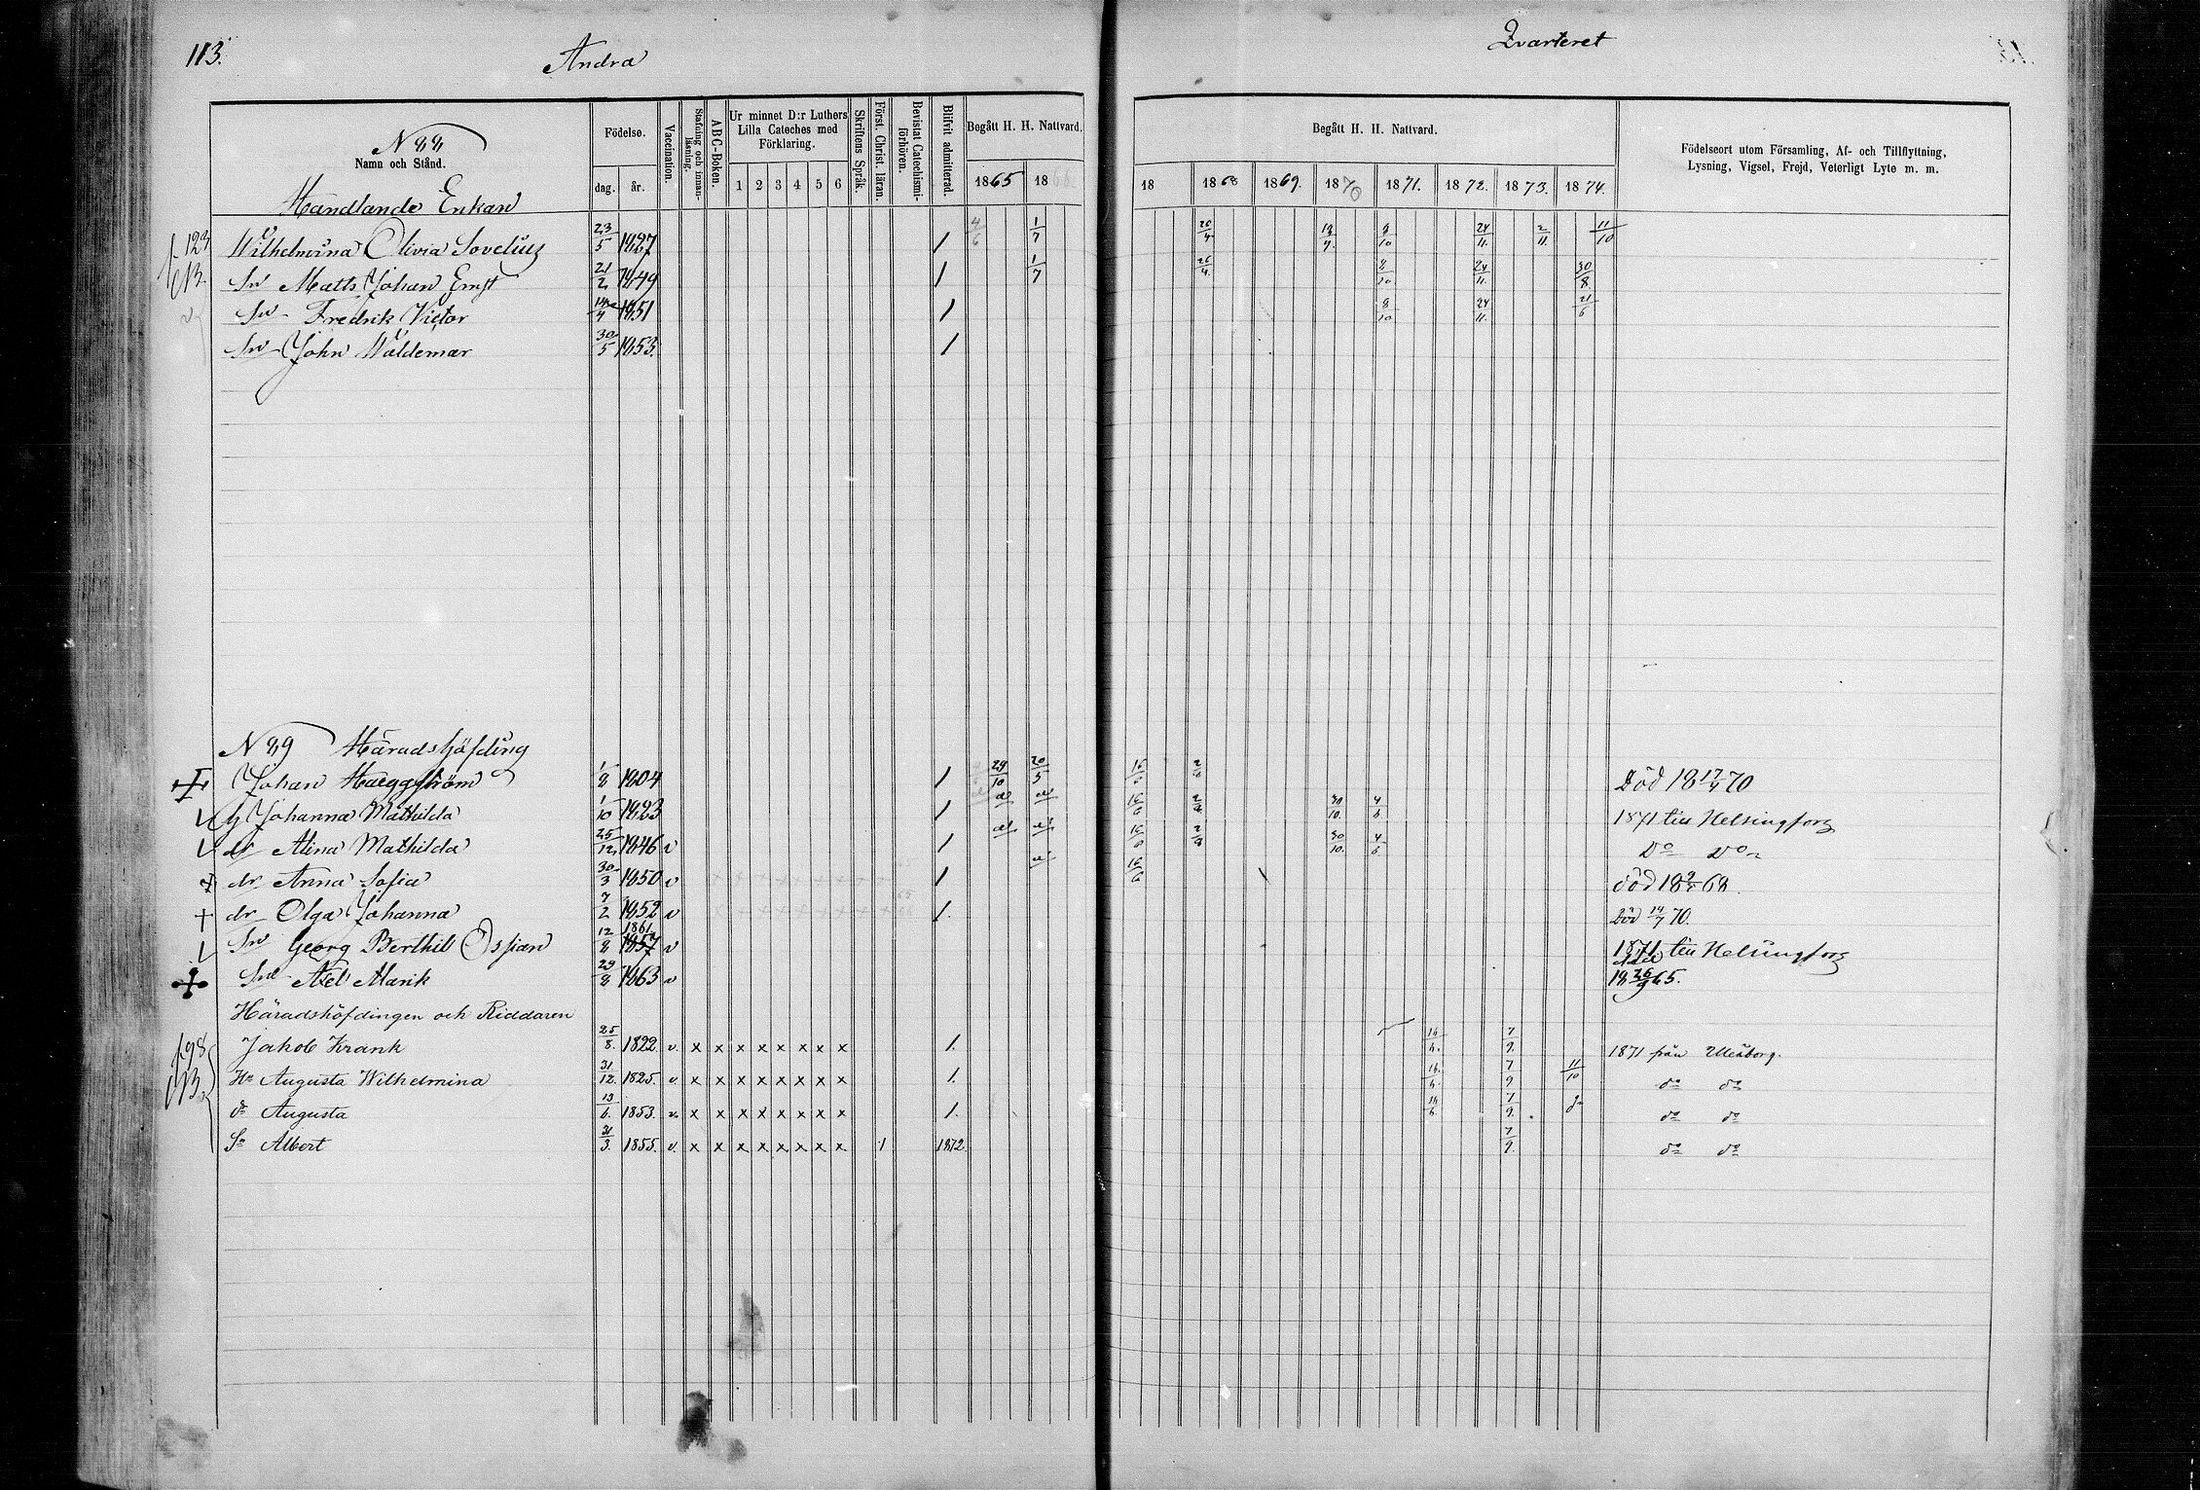 113.
Andra
Qvarteret
N 88
Namn och Stånd.
Födelse.
dag. år.
Vaccination.
Stafning och innanläsning.
ABC-Boken.
Ur minnet D:r Luthers Lilla Cateches med Förklaring.
1 2 3 4 5 6
Skriftens Språk.
Först. Christ. läran.
Bevistat Catechismiförhören.
Blifvit admitterad.
Begått H. H. Nattvard.
1865 1866
Begått H. H. Nattvard.
18 1868 1869. 1870 1871. 1872. 1873. 1874.
Födelseort utom Församling, Af- och Tillflyttning,
Lysning, Vigsel, Frejd, Veterligt Lyte m. m.
Handlande Enkan
p. 123 Wilhelmina Olivia Sovelius 23/5 1827 / 4/6 1/7 26/4 8/10 24/11. 2/11 11/10
Sn Matts Johan Ernst 21/2 1849 / 1/7 26/4 8/10 24/11. 30/8
Sn Fredrik Victor 1851 / 8/10 24/11. 21/6
Sn John Waldemar 30/5 1853. /
N 89 Häradshöfding
Johan Haeggström 1/8 1804 / 29/10 20/5 Död 18 17/4 70
H Johanna Mathilda 1/10 1823 / 30/10. 4/6 1871 till Helsingfors
dr Alina Mathilda 25/12 1846 v / 30/10. 4/6 Do Do
dr Anna Sofia 30/3 1850 v / död 18 68.
dr Olga Johanna 7/2 1852 v /. Död 14/7 70.
Sn Georg Berthil Ossian 12/8 1861 1857 v 1871 till Helsingfors
Sn Axel Alarik 29/8 1863 v Död 18 26/9 65.
Häradshöfdingen och Riddaren
p. 98 Jakob Krank 25/8. 1822. v. x x x x x x x x 1. 7/9. 1871 från Uleåborg.
Hu Augusta Wilhelmina 31/12. 1825. v. x x x x x x x x 1. 7/9 11/10 do do
dr Augusta 13/6. 1853. v. x x x x x x x x 1. 7/9. do do do
Sn Albert 31/3. 1855. v. x x x x x x x x 1 1872. 7/9. do do